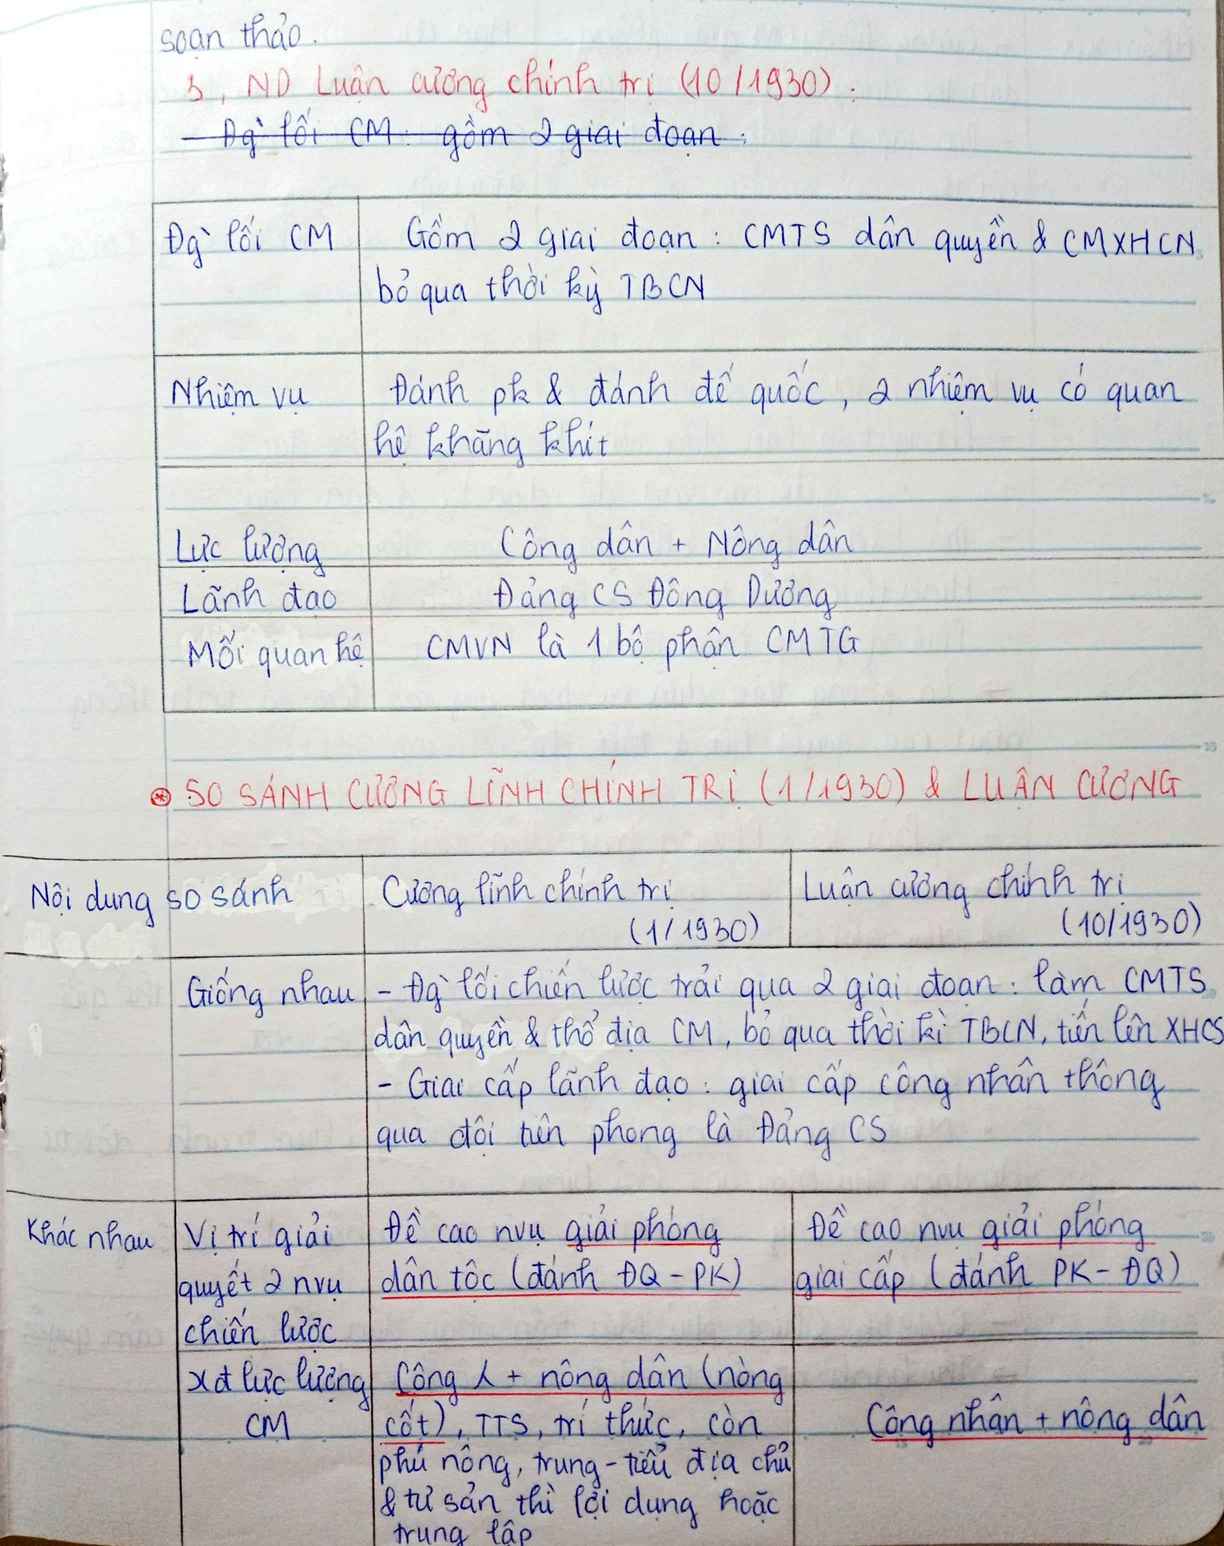 soạn thảo.
3, ND Luận cương chính trị (10/1930):
- Đg` lối CM: gồm 2 giai đoạn:
Đg` lối CM
Gồm 2 giai đoạn: CMTS dân quyền & CMXHCN
bỏ qua thời kỳ TBCN
Nhiệm vụ
Đánh pk & đánh đế quốc, 2 nhiệm vụ có quan
hệ khăng khít
Lực lượng
Công dân + Nông dân
Lãnh đạo
Đảng CS Đông Dương
Mối quan hệ
CMVN là 1 bộ phận CMTG
* SO SÁNH CƯƠNG LĨNH CHÍNH TRỊ (1/1930) & LUẬN CƯƠNG
Nội dung so sánh
Cương lĩnh chính trị
(1/1930)
Luận cương chính trị
(10/1930)
Giống nhau
- Đg` lối chiến lược trải qua 2 giai đoạn: làm CMTS
dân quyền & thổ địa CM, bỏ qua thời kì TBCN, tiến lên XHCS
- Giai cấp lãnh đạo: giai cấp công nhân thông
qua đội tiên phong là Đảng CS
Khác nhau
Vị trí giải
quyết 2 nvụ
chiến lược
Đề cao nvụ giải phóng
dân tộc (đánh ĐQ - PK)
Đề cao nvụ giải phóng
giai cấp (đánh PK - ĐQ)
xđ lực lượng
CM
Công λ + nông dân (nòng
cốt), TTS, trí thức, còn
phú nông, trung - tiểu địa chủ
& tư sản thì lợi dụng hoặc
trung lập
Công nhân + nông dân